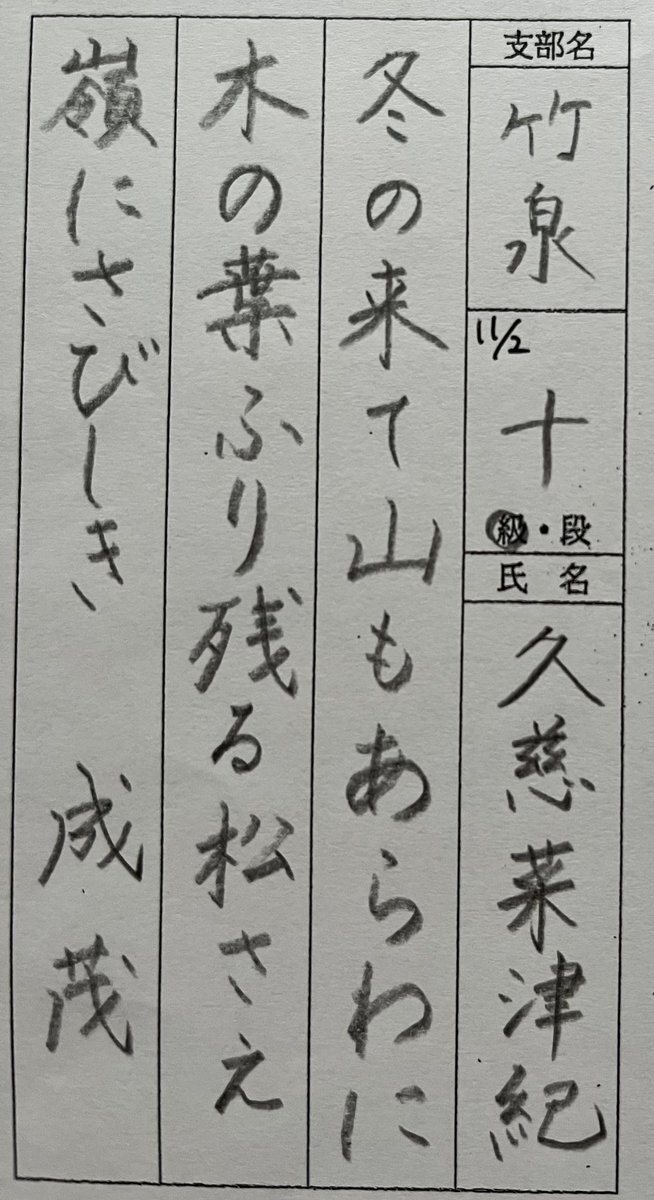 支部名
竹泉
11/2
十
級・段
氏名
久慈菜津紀
冬の来て山もあらわに
木の葉ふり残る松さえ
嶺にさびしき 成茂